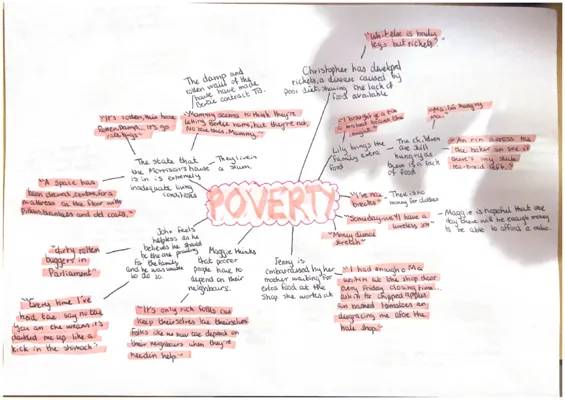 "What else is bowly
legs but rickets?"
Christopher has developed
rickets, a disease caused by
poor diet, showing the lack of
food available
The damp and
rotten walls of the
house have made
Bertie contract TB.
"Mammy seems to think they're
letting
but they're not.
No use this, Mammy."
"It's rotten, this house,
Rotten. Damp...
The state that
the Morrison's house
is in is extremely
inadequate living
conditions
They live in
a slum.
"A space has
been cleared
for a
mattress on the floor with
and old coats."
"I brought ye a
the night."
Lily brings the
family extra
food
"Ma, I'm hungry
ma."
The children
are still
hungry as
there is a lack
of food
"An rin across tae
the baker an see if
there's ony stale
tea-breid left."
POVERTY
"I've nae
breeks"
There is no
money for clothes
"Someday we'll have a
wireless
"Money disnae
stretch"
Maggie is hopeful that one
day there will be enough money
to be able to afford a radio.
John feels
helpless as he
believes he should
be the one providing
for the family
and he was unable
to do so.
"dirty rotten
buggers in
Parliament"
"Every time I've
had tae say no tae
you an the weans it's
me up like a
kick in the stomach"
Maggie thinks
that poorer
people have to
depend on their
neighbours.
"It's only rich folks can
keep theirselves tae theirselves.
Folks like us huv tae depend on
their neighbours when they're
needin help"
Jenny is
embarrassed by her
mother waiting for
extra food at the
shop she works at
"I had enough o Ma
waitin at the shop door
every Friday closing time...
askin fur chipped apples
an bashed tomatoes an
disgracing me afore the
hale shop."